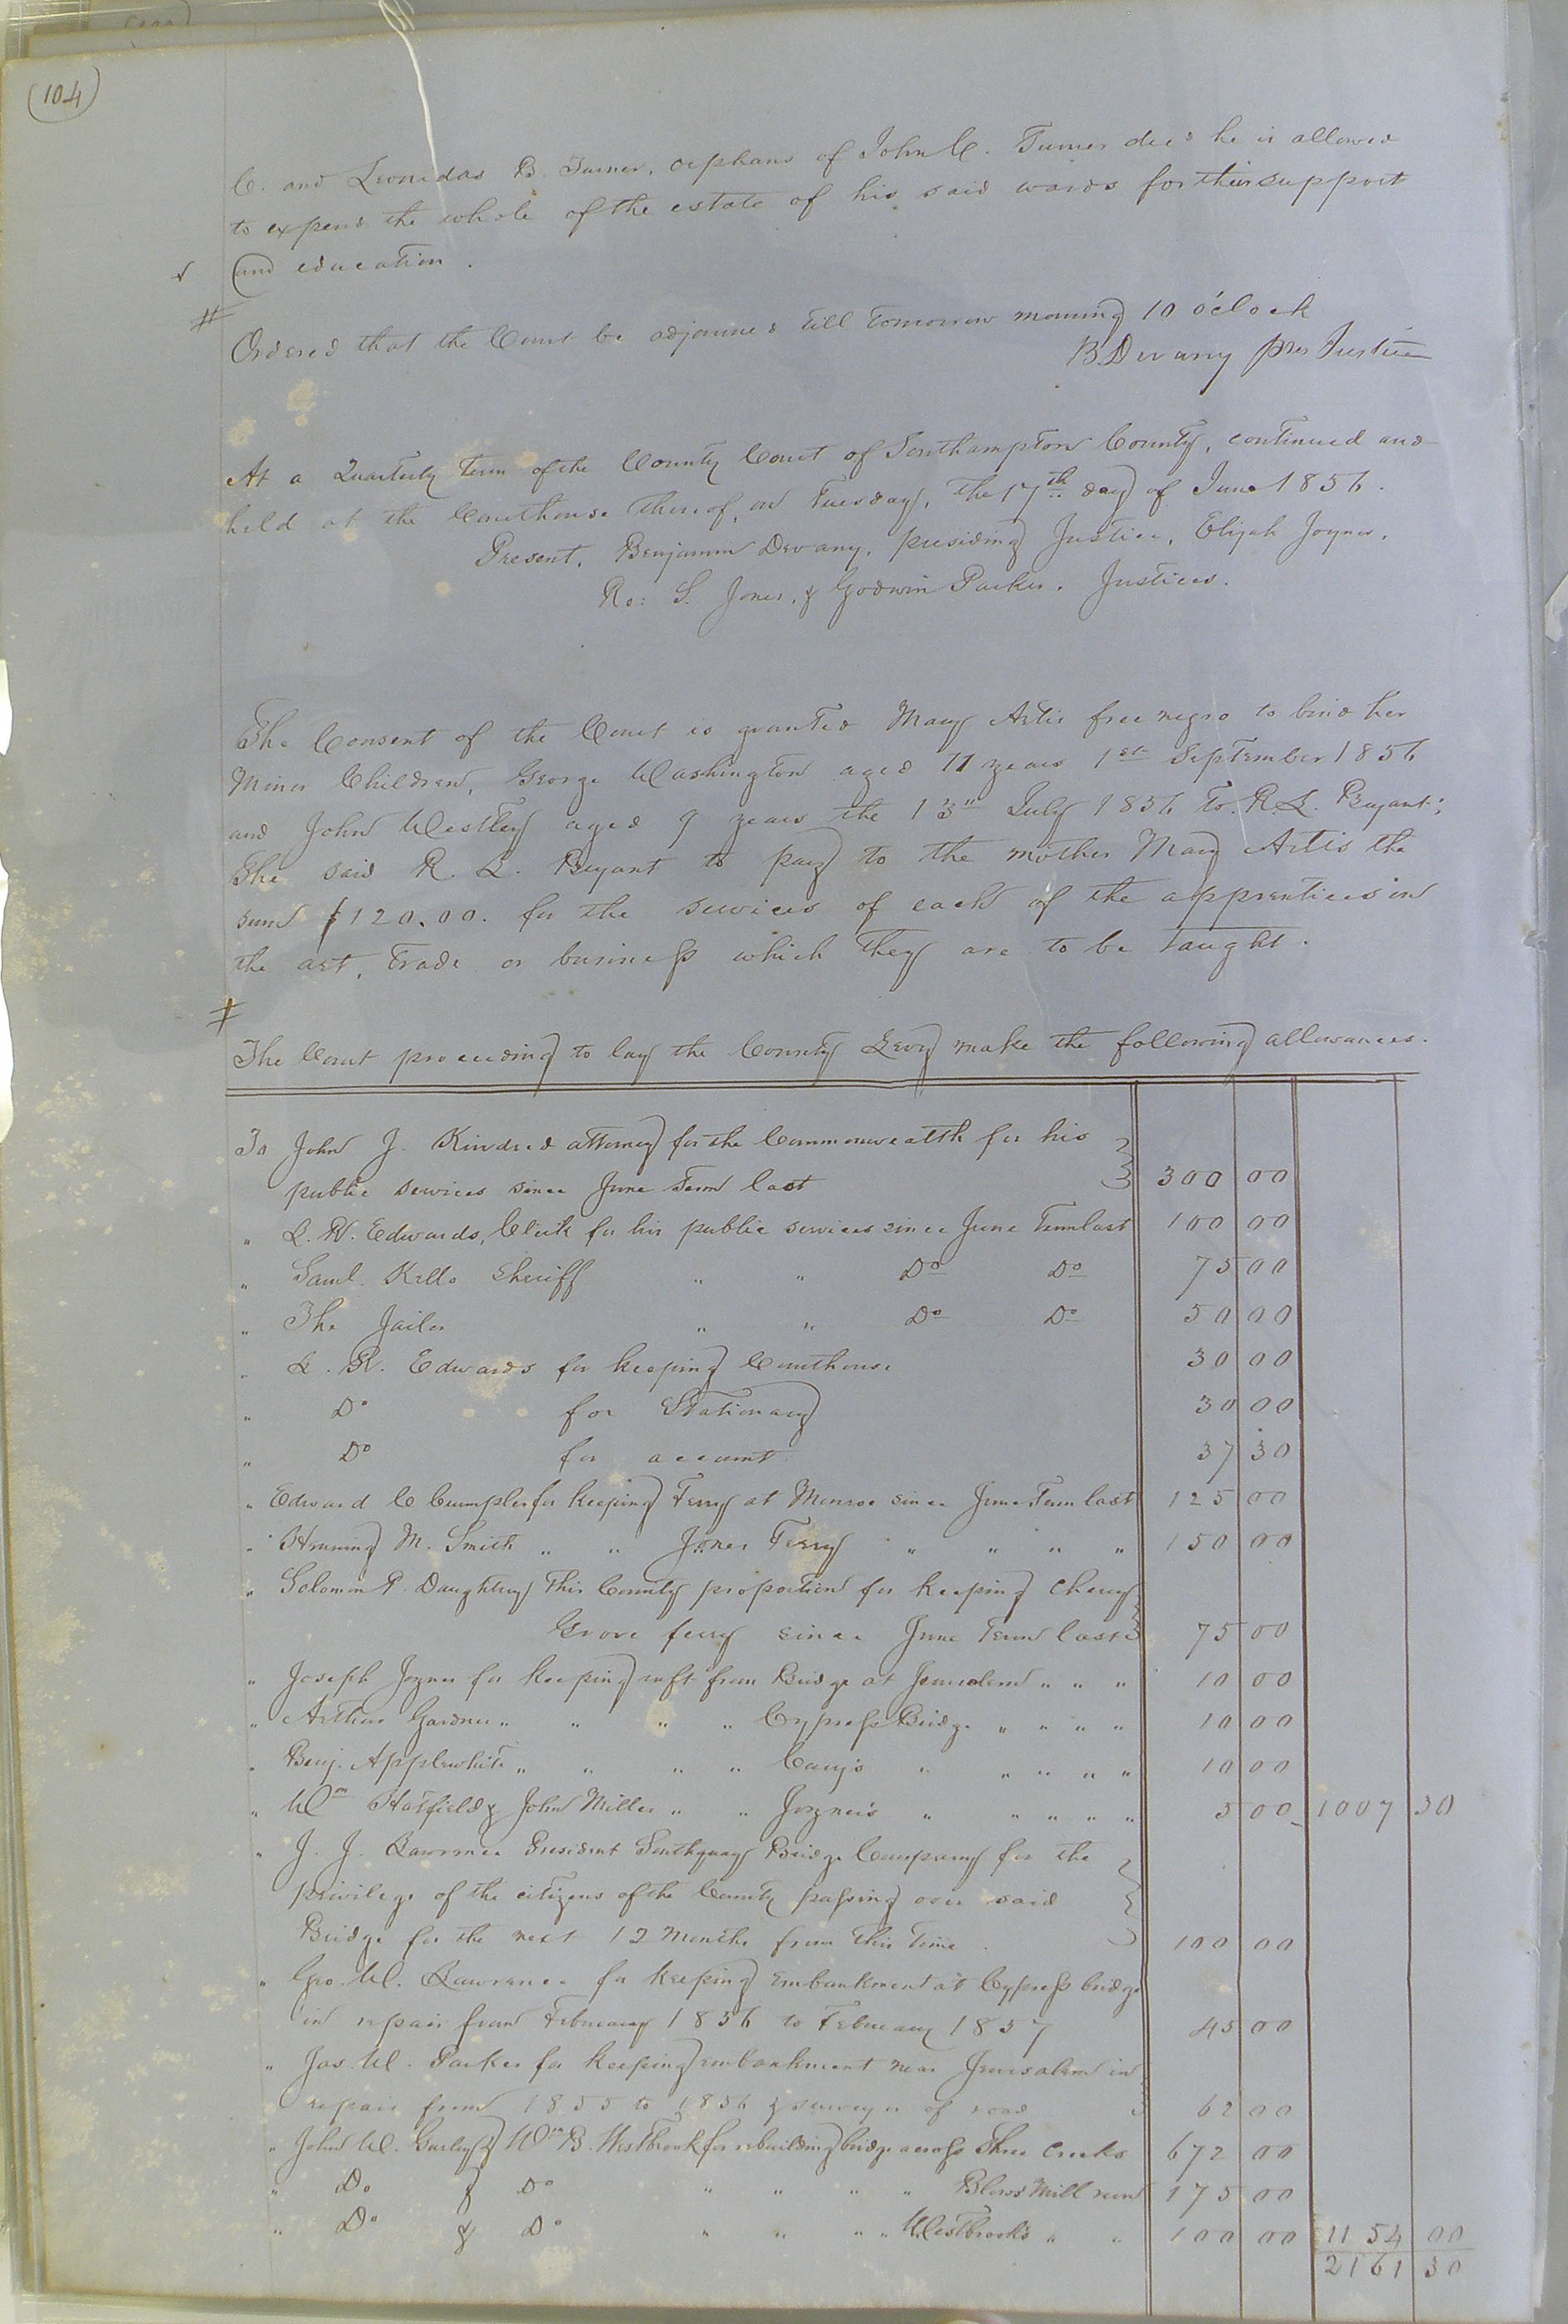 (104)
C. and Leonidas B. Turner, orphans of John C. Turner decd he is allowed
to expend the whole of the estate of his said wards for their support
and education.
Ordered that the Court be adjourned till tomorrow morning 10 o'clock
B Devany pres Justice
At a Quarterly Term of the County Court of Southampton County, continued and
held at the Courthouse thereof, on Tuesday, the 17th day of June 1856.
Present, Benjamin Devany, presiding Justice, Elijah Joyner,
Ro: S. Jones, & Godwin Parker, Justices.
The Consent of the Court is granted Mary Artis free negro to bind her
Minor Children, George Washington aged 11 years 1st September 1856
and John Westley aged 9 years the 13" July 1856 to R. L. Bryant;
The said R. L. Bryant to pay to the mother Mary Artis the
sum $120.00. for the services of each of the apprentices in
the art, trade or business which they are to be taught.
The Court proceeding to lay the County Levy make the following allowances.
To John J. Kindred attorney for the Commonwealth for his
public services since June Term last 300 00
" L. R. Edwards, Clerk for his public services since June Term last 100 00
" Saml. Kello Sheriff " " Do Do 75 00
" The Jailor " " Do Do 50 00
" L. R. Edwards for keeping Courthouse 30 00
" Do for Stationary 30 00
" Do for account 37 30
" Edward C Crumpler for keeping Ferry at Monroe since June Term last 125 00
" M. Smith " " Jones Ferry " " " " 150 00
" Solomon P. Daughtrey This County proportion for keeping Cherry
Grove ferry since June Term last 75 00
" Joseph Joyner for keeping raft from Bridge at Jerusalem " " " 10 00
" Arthur Gardner " " " " Cypress Bridge " " " " 10 00
" Benj. Applewhite " " " " Cary's " " " " " 10 00
" Wm Hatfield & John Miller " " Joyner's " " " " " 5 00 1007 30
" J. J. Lawrence President Southquay Bridge Company for the
privilege of the citizens of the County passing over said
Bridge for the next 12 Months from this time. 100 00
" Geo. W. Lawrence for keeping embankment at Cypress bridge
in repair from February 1856 to February 1857 45 00
" Jas. W. Parker for keeping embankment near Jerusalem in
repair from 1855 to 1856 & surveyor of road 62 00
" John W. Gurley & Wm B. Westbrook for rebuilding bridge across Three Creeks 672 00
" Do & Do " " " " Blows Mill run 175 00
" Do & Do " " " " Westbrook's " " 100 00 1154 00
2161 30